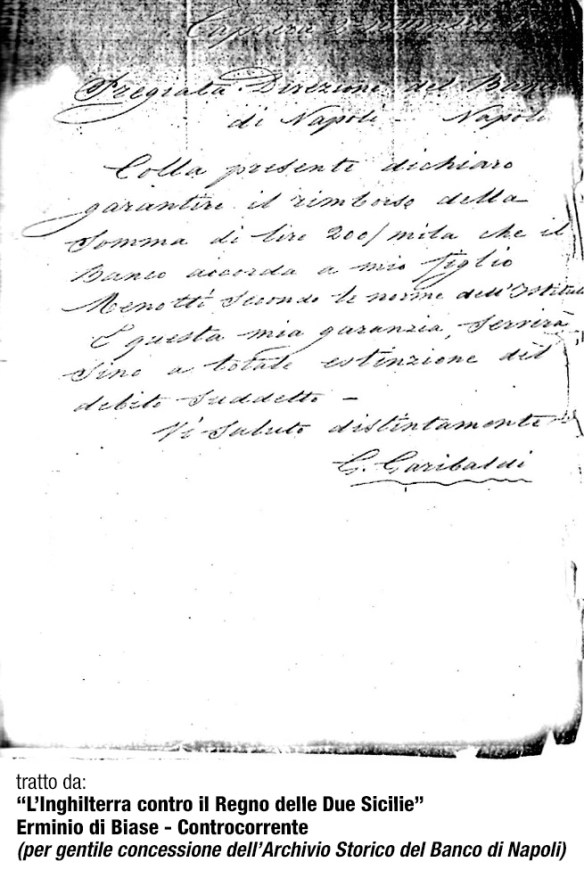 Caprera
Pregiata Direzione del Banco
di Napoli - Napoli
Colla presente dichiaro
garantire il rimborso della
somma di lire 200/mila che il
Banco accorda a mio figlio
Menotti secondo le norme dell'Istituto
E questa mia garanzia, servirà
sino a totale estinzione del
debito suddetto -
Vi saluto distintamente
G. Garibaldi
tratto da:
“L’Inghilterra contro il Regno delle Due Sicilie”
Erminio di Biase - Controcorrente
(per gentile concessione dell’Archivio Storico del Banco di Napoli)